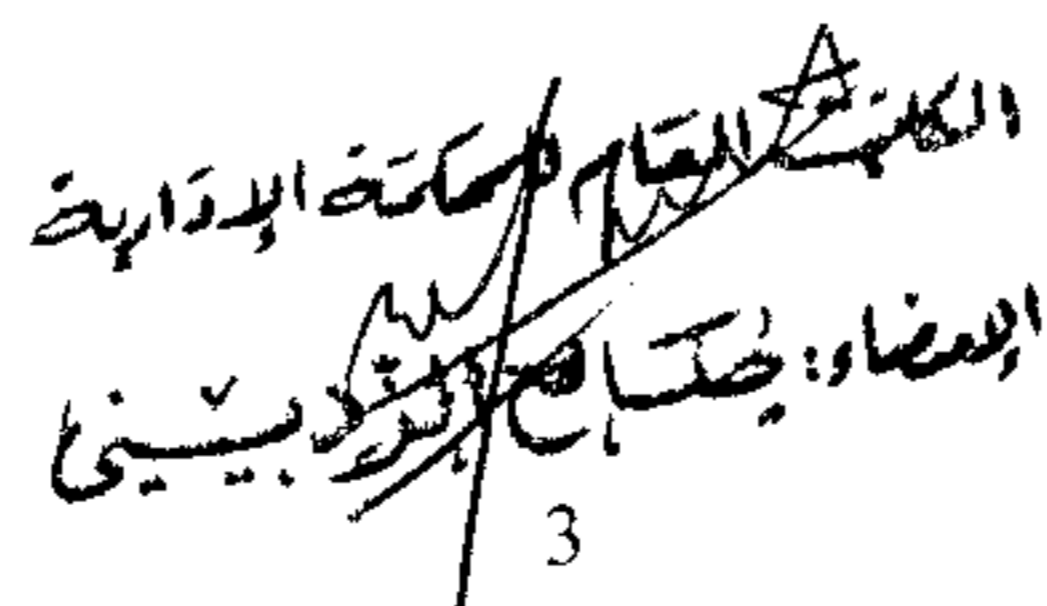 الكاتب العام للمحكمة الإدارية
الإمضاء: الدبيسي
3